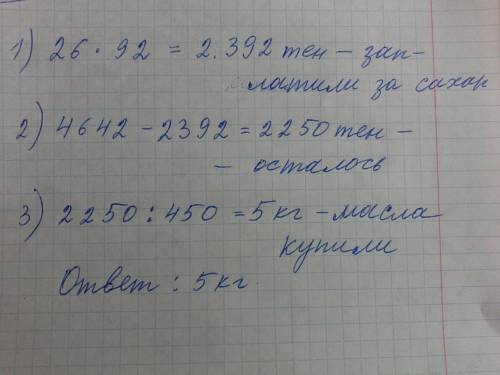 1) 26 · 92 = 2.392 тен – зап-
латили за сахар
2) 4642 – 2392 = 2250 тен –
– осталось
3) 2250 : 450 = 5 кг – масла
купили
Ответ : 5 кг.